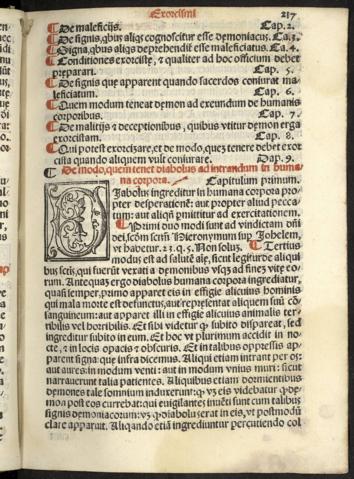 Exorcismi 217
De maleficijs. Cap. 2.
De signis, qbus aliqs cognoscitur esse demoniacus. Ca. 3.
Signa, qbus aliqs deprehendit esse maleficiatus. Ca. 4.
Conditiones exorcistę, & qualiter ad hoc officium debet
preparari. Cap. 5.
De signis que apparent quando sacerdos coniurat ma
leficiatum. Cap. 6.
Quem modum teneat demon ad exeundum de humanis
corporibus. Cap. 7.
De malitijs & deceptionibus, quibus vtitur demon erga
exorcistam. Cap. 8.
Qui potest exorcizare, et de modo, quez tenere debet exor
cista quando aliquem vult coniurare. Cap. 9.
De modo, quem tenet diabolus ad intrandum in huma
na corpora. Capitulum primum.
Diabolus ingreditur in humana corpora pro
pter desperationē: aut propter aliud pecca
tum: aut aliqñ ꝑmittitur ad exercitationem.
Primi duo modi sunt ad vindictam diui
dei, scḋm Hieronymum sup Jobelem,
vt habetur. 23. q. 5. Non solus. Tertius
modus est ad salutē aīę, sicut legitur de aliqui
bus sctis, qui fuerūt vexati a demonibus vsqz ad finez vitę co
rum. Antequaz ergo diabolus humana corpora ingrediatur,
quasi semper, primo apparet eis in effigie alicuius hominis
qui mala morte est defunctus, aut representat aliquem suū cō
sanguineum: aut apparet illi in effigie alicuius animalis ter-
ribilis vel horribilis. Et sibi videtur ꝙ subito dispareat, sed
ingreditur subito in eum. Et hoc vt plurimum accidit in no
cte, & in locis opacis & obscuris. Et in talibus oppressis ap
parent signa que infra dicemus. Aliqui etiam intrant per os:
aut aures: in modum venti: aut in modum vnius muri: sicut
narrauerunt talia patientes. Aliquibus etiam dormientibus
demones tale somnium induxerunt: ꝙ vz eis videbatur ꝙ de-
mon post eos currebat: qui euigilantes inuēti sunt cum talibus
signis demoniacorum: vz ꝙ diabolus erat in eis, vt postmodū
clare apparuit. Aliquando etiā ingrediuntur percutiendo col